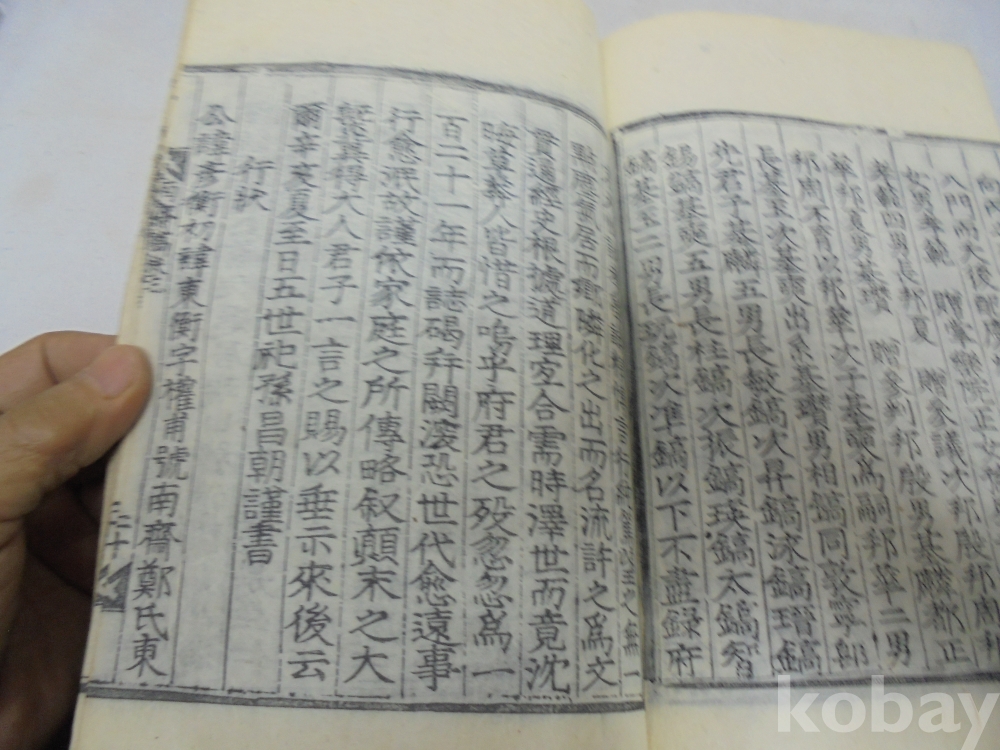 入門而大後
女男華範 贈掌樂院正女
華範四男長邦夏 贈參判邦殷男基麟都正
華邦夏男基瓚 贈家議次邦殷邦周
邦周不育以邦華次子基奭爲嗣邦華二男
長基玉次基奭出系基瓚男相鎬同敦寧
北君子基麟五男長敏鎬次昇鎬泳鎬瑨鎬
錫鎬基奭五男長柱鎬次振鎬瑛鎬太鎬智
鎬基玉二男長 鎬次准鎬以下不盡錄府
居而 磷化之出而名流許之爲文
貫過經史根據道理 合需時澤世而竟沈
晦 人皆惜之嗚乎府君之歿忽忽爲一
百二十一年而誌碣幷闕滾恐世代愈遠事
行愈泯故謹依家庭之所傳略叙顚末之大
槩冀得大人君子一言之賜以垂示來後云
爾辛亥夏至日五世祀孫昌朝謹書
行狀
公諱彦衡初諱東衡字權甫號南齋鄭氏東
三十
kobay